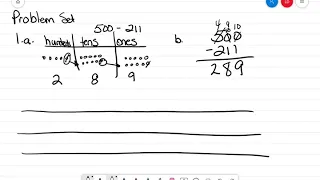 Problem Set
500 - 211
1.a. hundreds tens ones
2 8 9
b.
4 9 10
500
-211
289